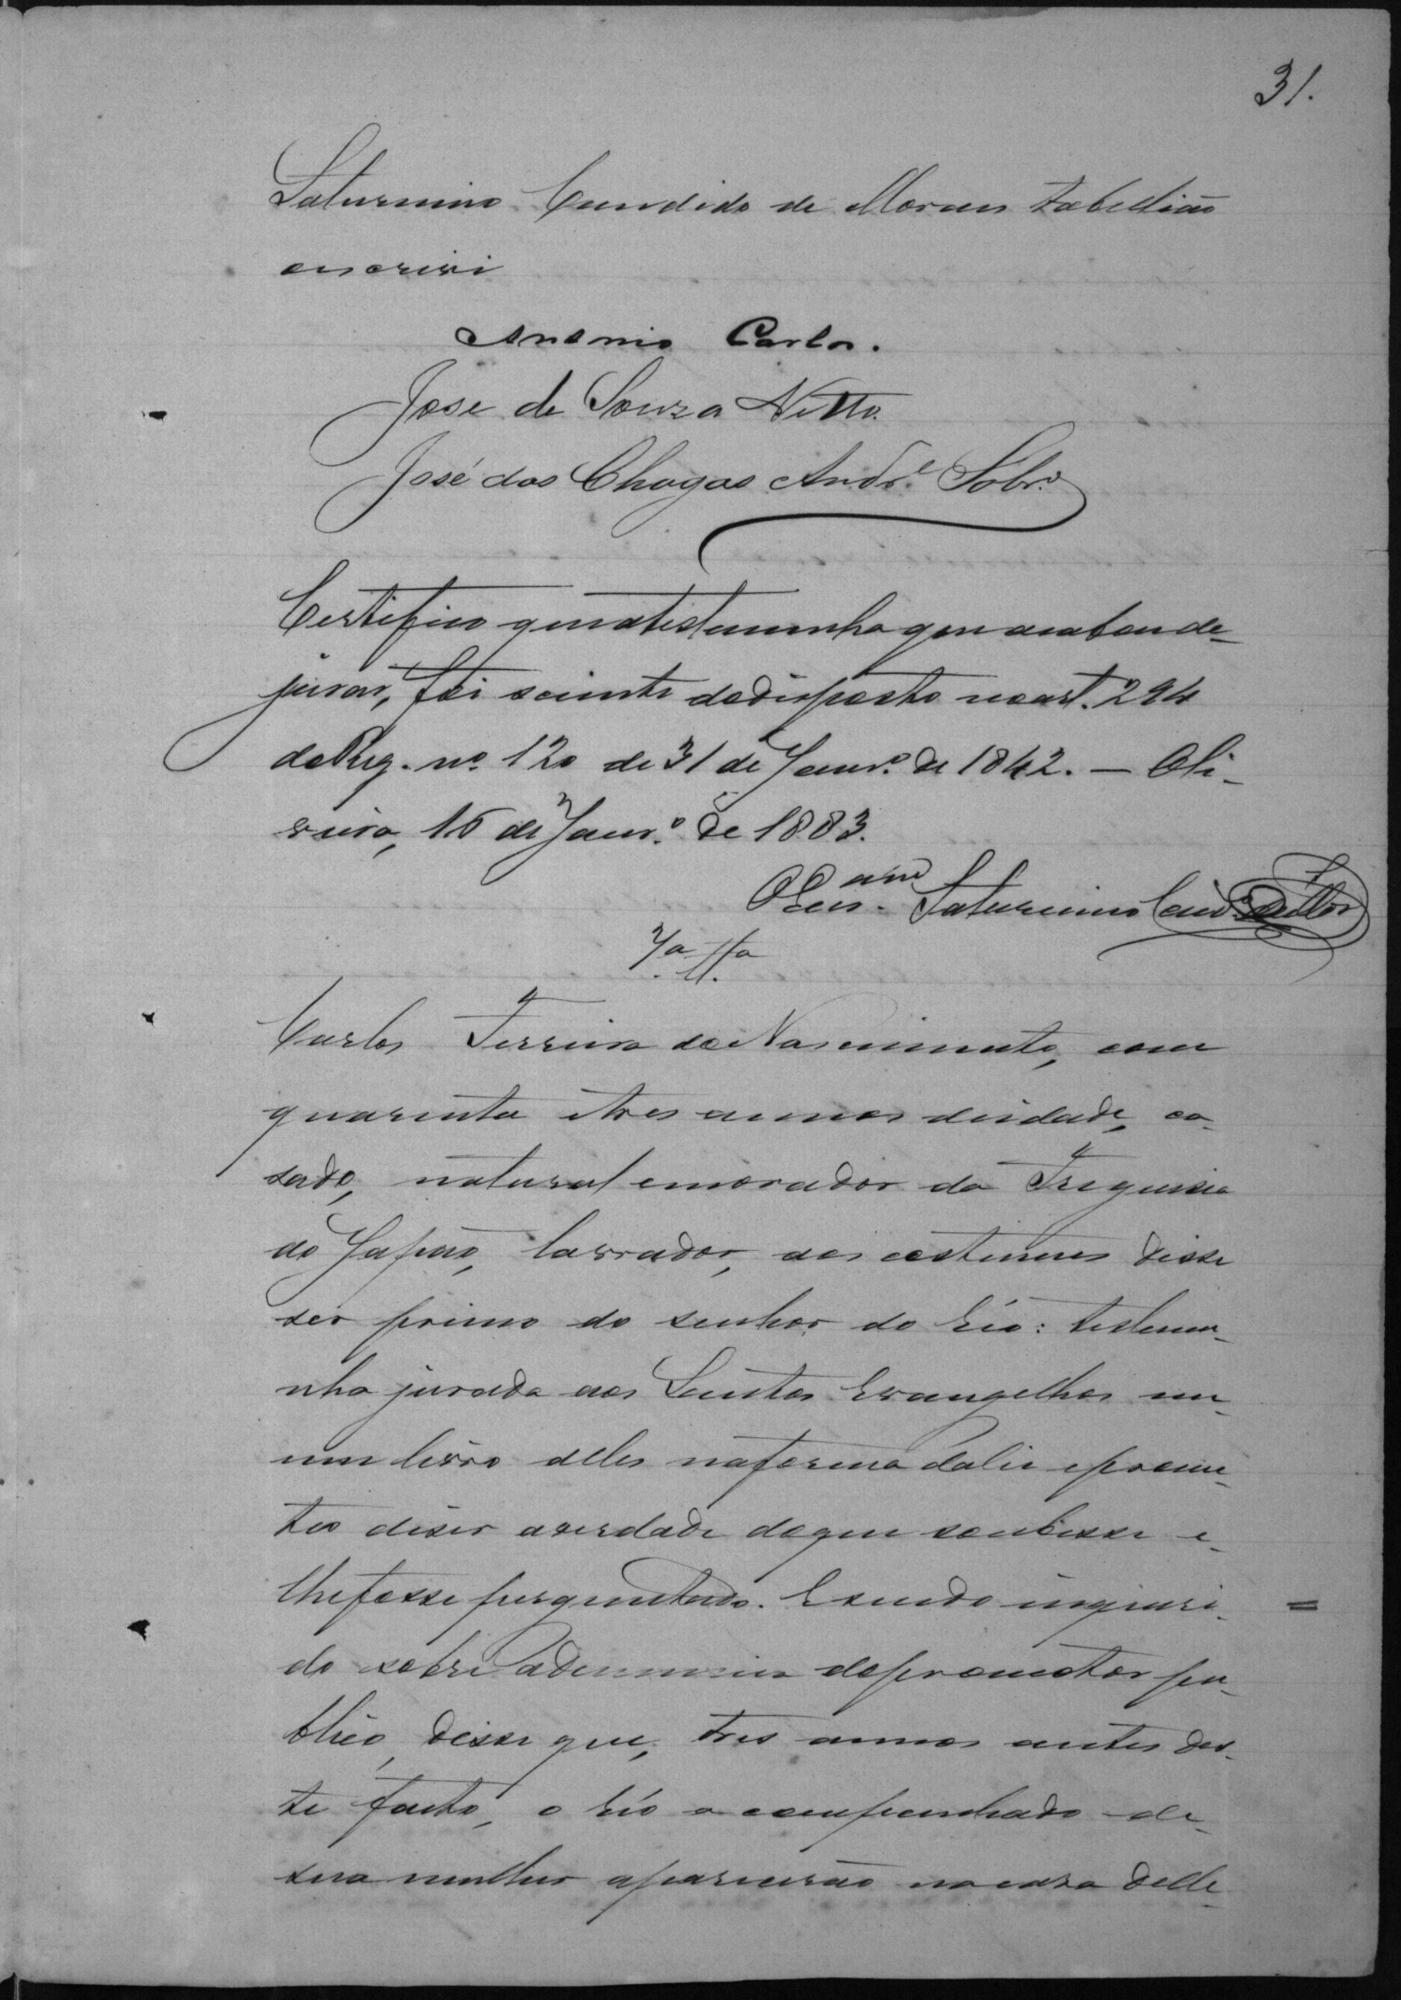 31.
Saturnino Candido de Moraes tabellião
escrivi
Antonio Carlos.
Jose de Souza Netto.
José das Chagas Andr.e Sobr.o
Certifico que a testemunha que acabou de
jurar, foi sciente do disposto no art. 294
do Reg. nº 120 de 31 de Janr.º de 1842. — Oli-
veira, 16 de Janr.º de 1883.
O Escr.am Saturnino Cand.
7.a tt.a
Carlos Ferreira do Nascimento, com
quarenta e tres annos de idade, ca-
sado, natural e morador da Freguesia
do Japão, lavrador, aos costumes disse
ser primo do senhor do réo: testemu-
nha jurada aos Santos Evangelhos em
um livro delles na forma da lei e prome-
teo diser a verdade do que soubesse e-
lhe fosse perguntado. E sendo inquiri-
do sobre a denuncia do promotor pu-
blico, disse que, tres annos antes des-
te facto, o réo acompanhado de-
sua mulher aparecerão na casa delle-